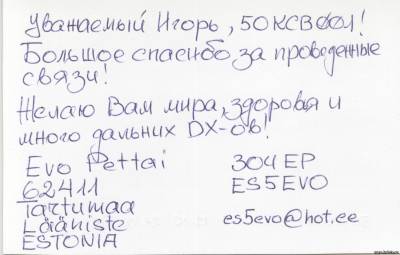 Уважаемый Игорь, 50КСВ001!
Большое спасибо за проведенные
связи!
Желаю Вам мира, здоровья и
много дальних DX-ов!
Evo Pettai 304EP
62411 ES5EVO
Tartumaa
Lääniste es5evo@hot.ee
ESTONIA